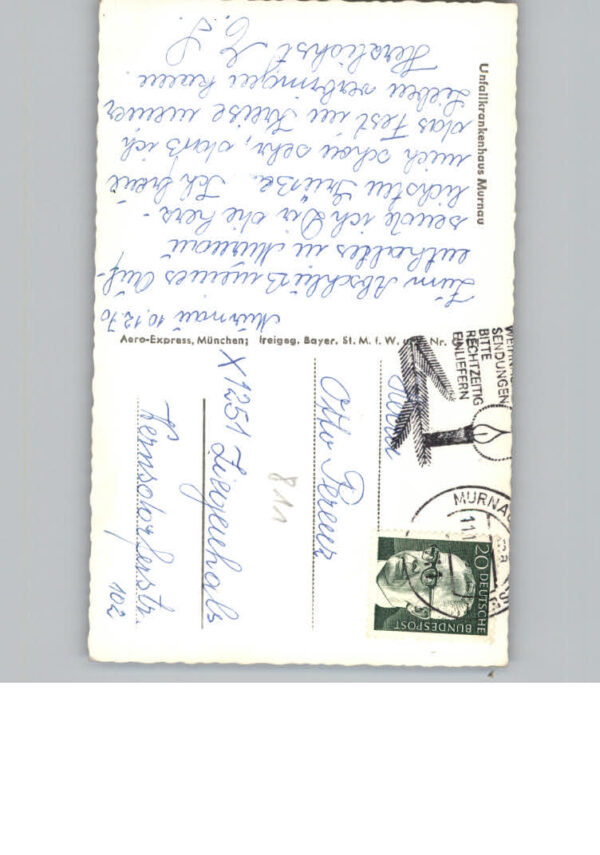 Unfallkrankenhaus Murnau
Murnau 10.12.70
Zum Abschluß meines Auf-
enthaltes in Murnau
sende ich Dir die herz-
lichsten Grüße. Ich freue
mich schon sehr, daß ich
das Fest im Kreise meiner
Lieben verbringen kann.
Herzlichst
Aero-Express, München; freigeg. Bayer. St. M. f. W. Nr.
SENDUNGEN
BITTE
RECHTZEITIG
EINLIEFERN
MURNAU
20 DEUTSCHE
BUNDESPOST
Herrn
Otto
811
X 1251 Ziegenhals
Wernsdorferstr.
102